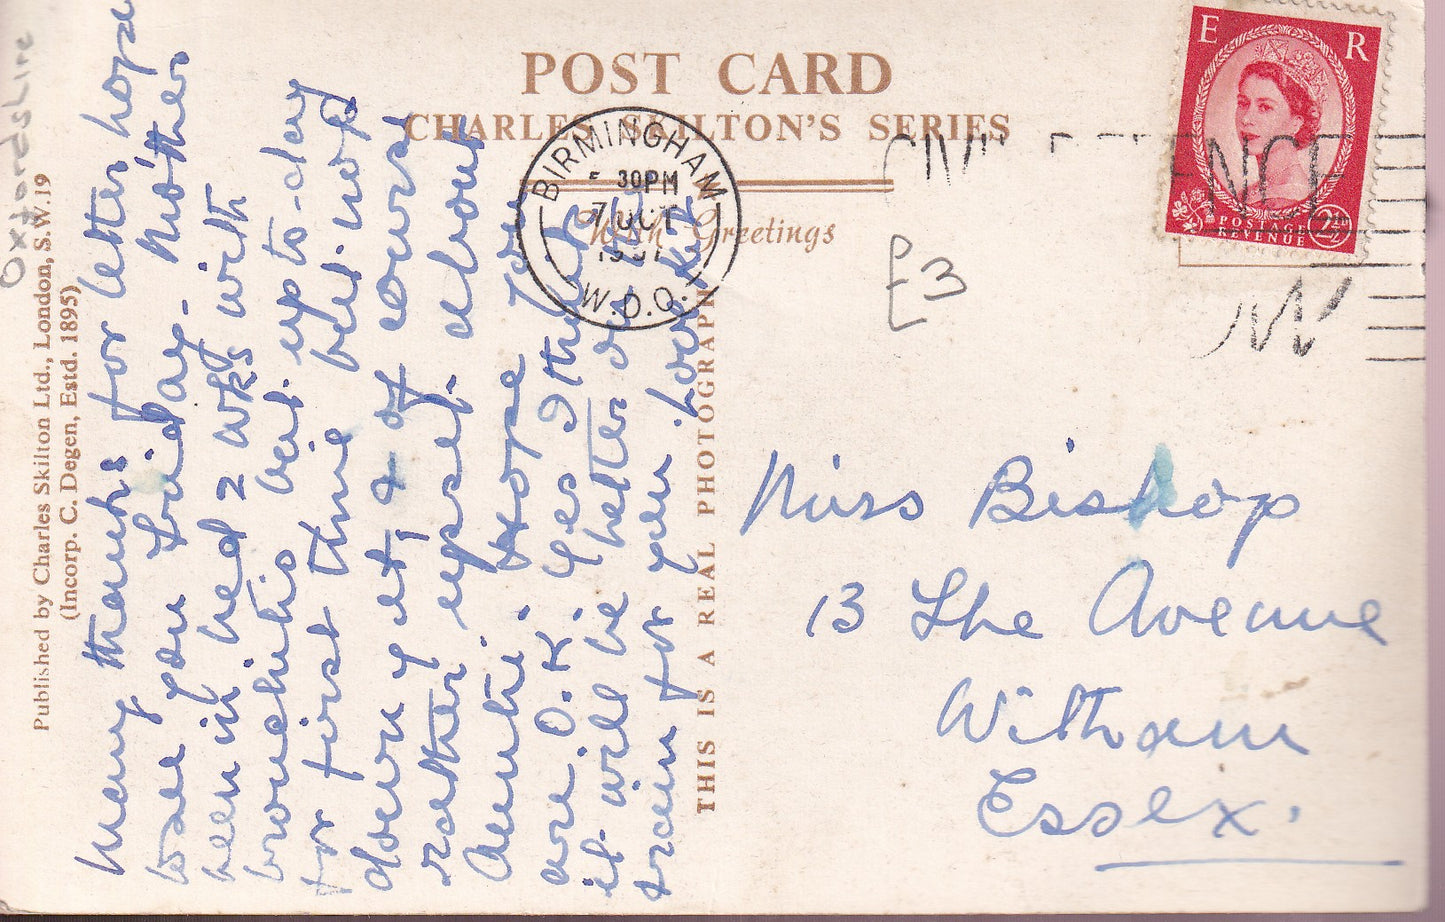 POST CARD
CHARLES SKILTON'S SERIES
With Greetings
BIRMINGHAM
30PM
7 OCT
W.D.O.
E R
POSTAGE
REVENUE
2½
£3
Oxfordshire
Published by Charles Skilton Ltd., London, S.W.19
(Incorp. C. Degen, Estd. 1895)
THIS IS A REAL PHOTOGRAPH
Many thanks for letter hope
to see you Friday. Mother
been in bed 2 wks with
bronchitis but up to-day
for first time but not
down yet, & of course
rather upset about
Auntie. Hope you
are O.K. Yes I think
it will be better
train for you
Miss Bishop
13 The Avenue
Witham
Essex.